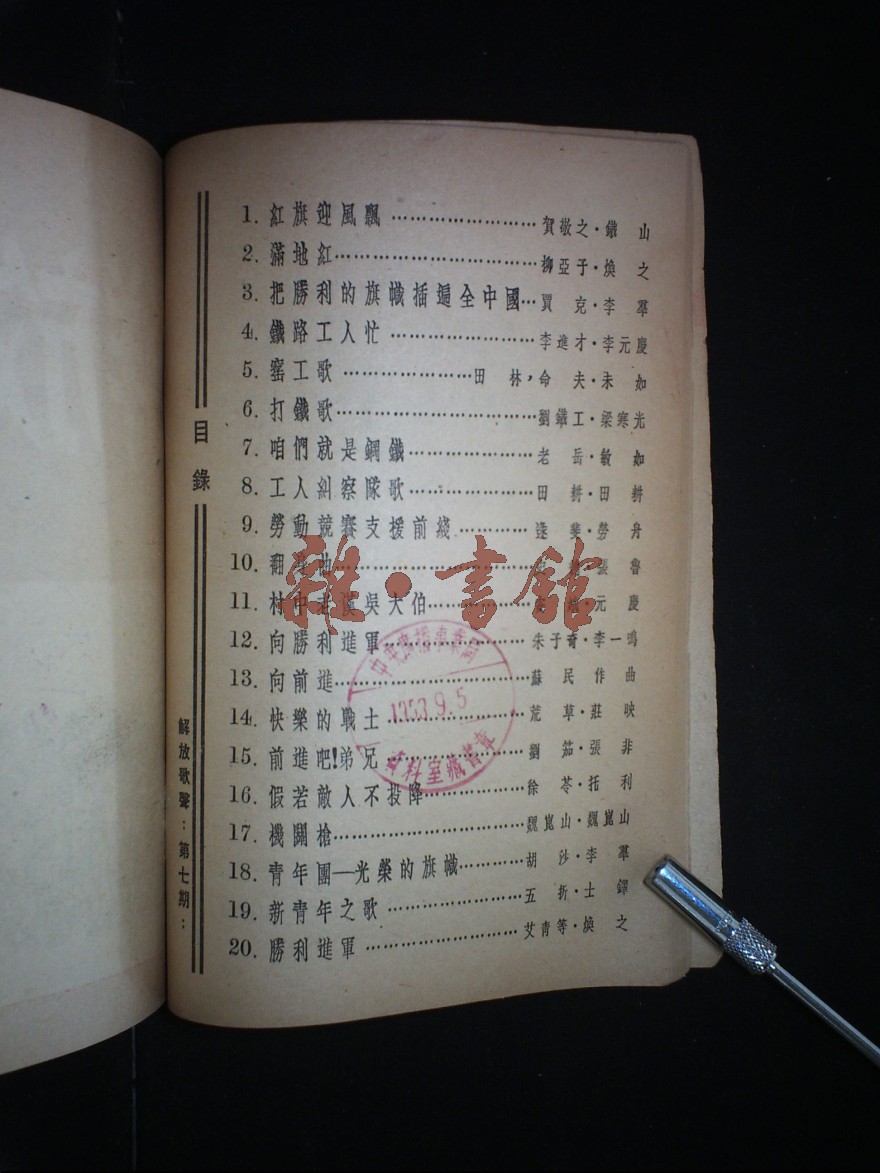 目錄
解放歌聲：第七期：
1. 紅旗迎風飄 賀敬之·鐵山
2. 滿地紅 柳亞子·煥之
3. 把勝利的旗幟插遍全中國 賈克·李羣
4. 鐵路工人忙 李進才·李元慶
5. 窰工歌 田林，命夫·未如
6. 打鐵歌 劉鐵工·梁寒光
7. 咱們就是鋼鐵 老岳·敏如
8. 工人糾察隊歌 田耕·田耕
9. 勞動競賽支援前綫 逯斐·勞舟
10. 翻身 張魯
11. 村中老漢吳大伯 元慶
12. 向勝利進軍 朱子奇·李一鳴
13. 向前進 蘇民作曲
14. 快樂的戰士 荒草·莊映
15. 前進吧！弟兄 劉茄·張非
16. 假若敵人不投降 徐苓·托利
17. 機關槍 魏崑山·魏崑山
18. 青年團—光榮的旗幟 胡沙·李羣
19. 新青年之歌 五折·士鐸
20. 勝利進軍 艾青等·煥之
雜·書館
1953 9. 5
資料室藏書章